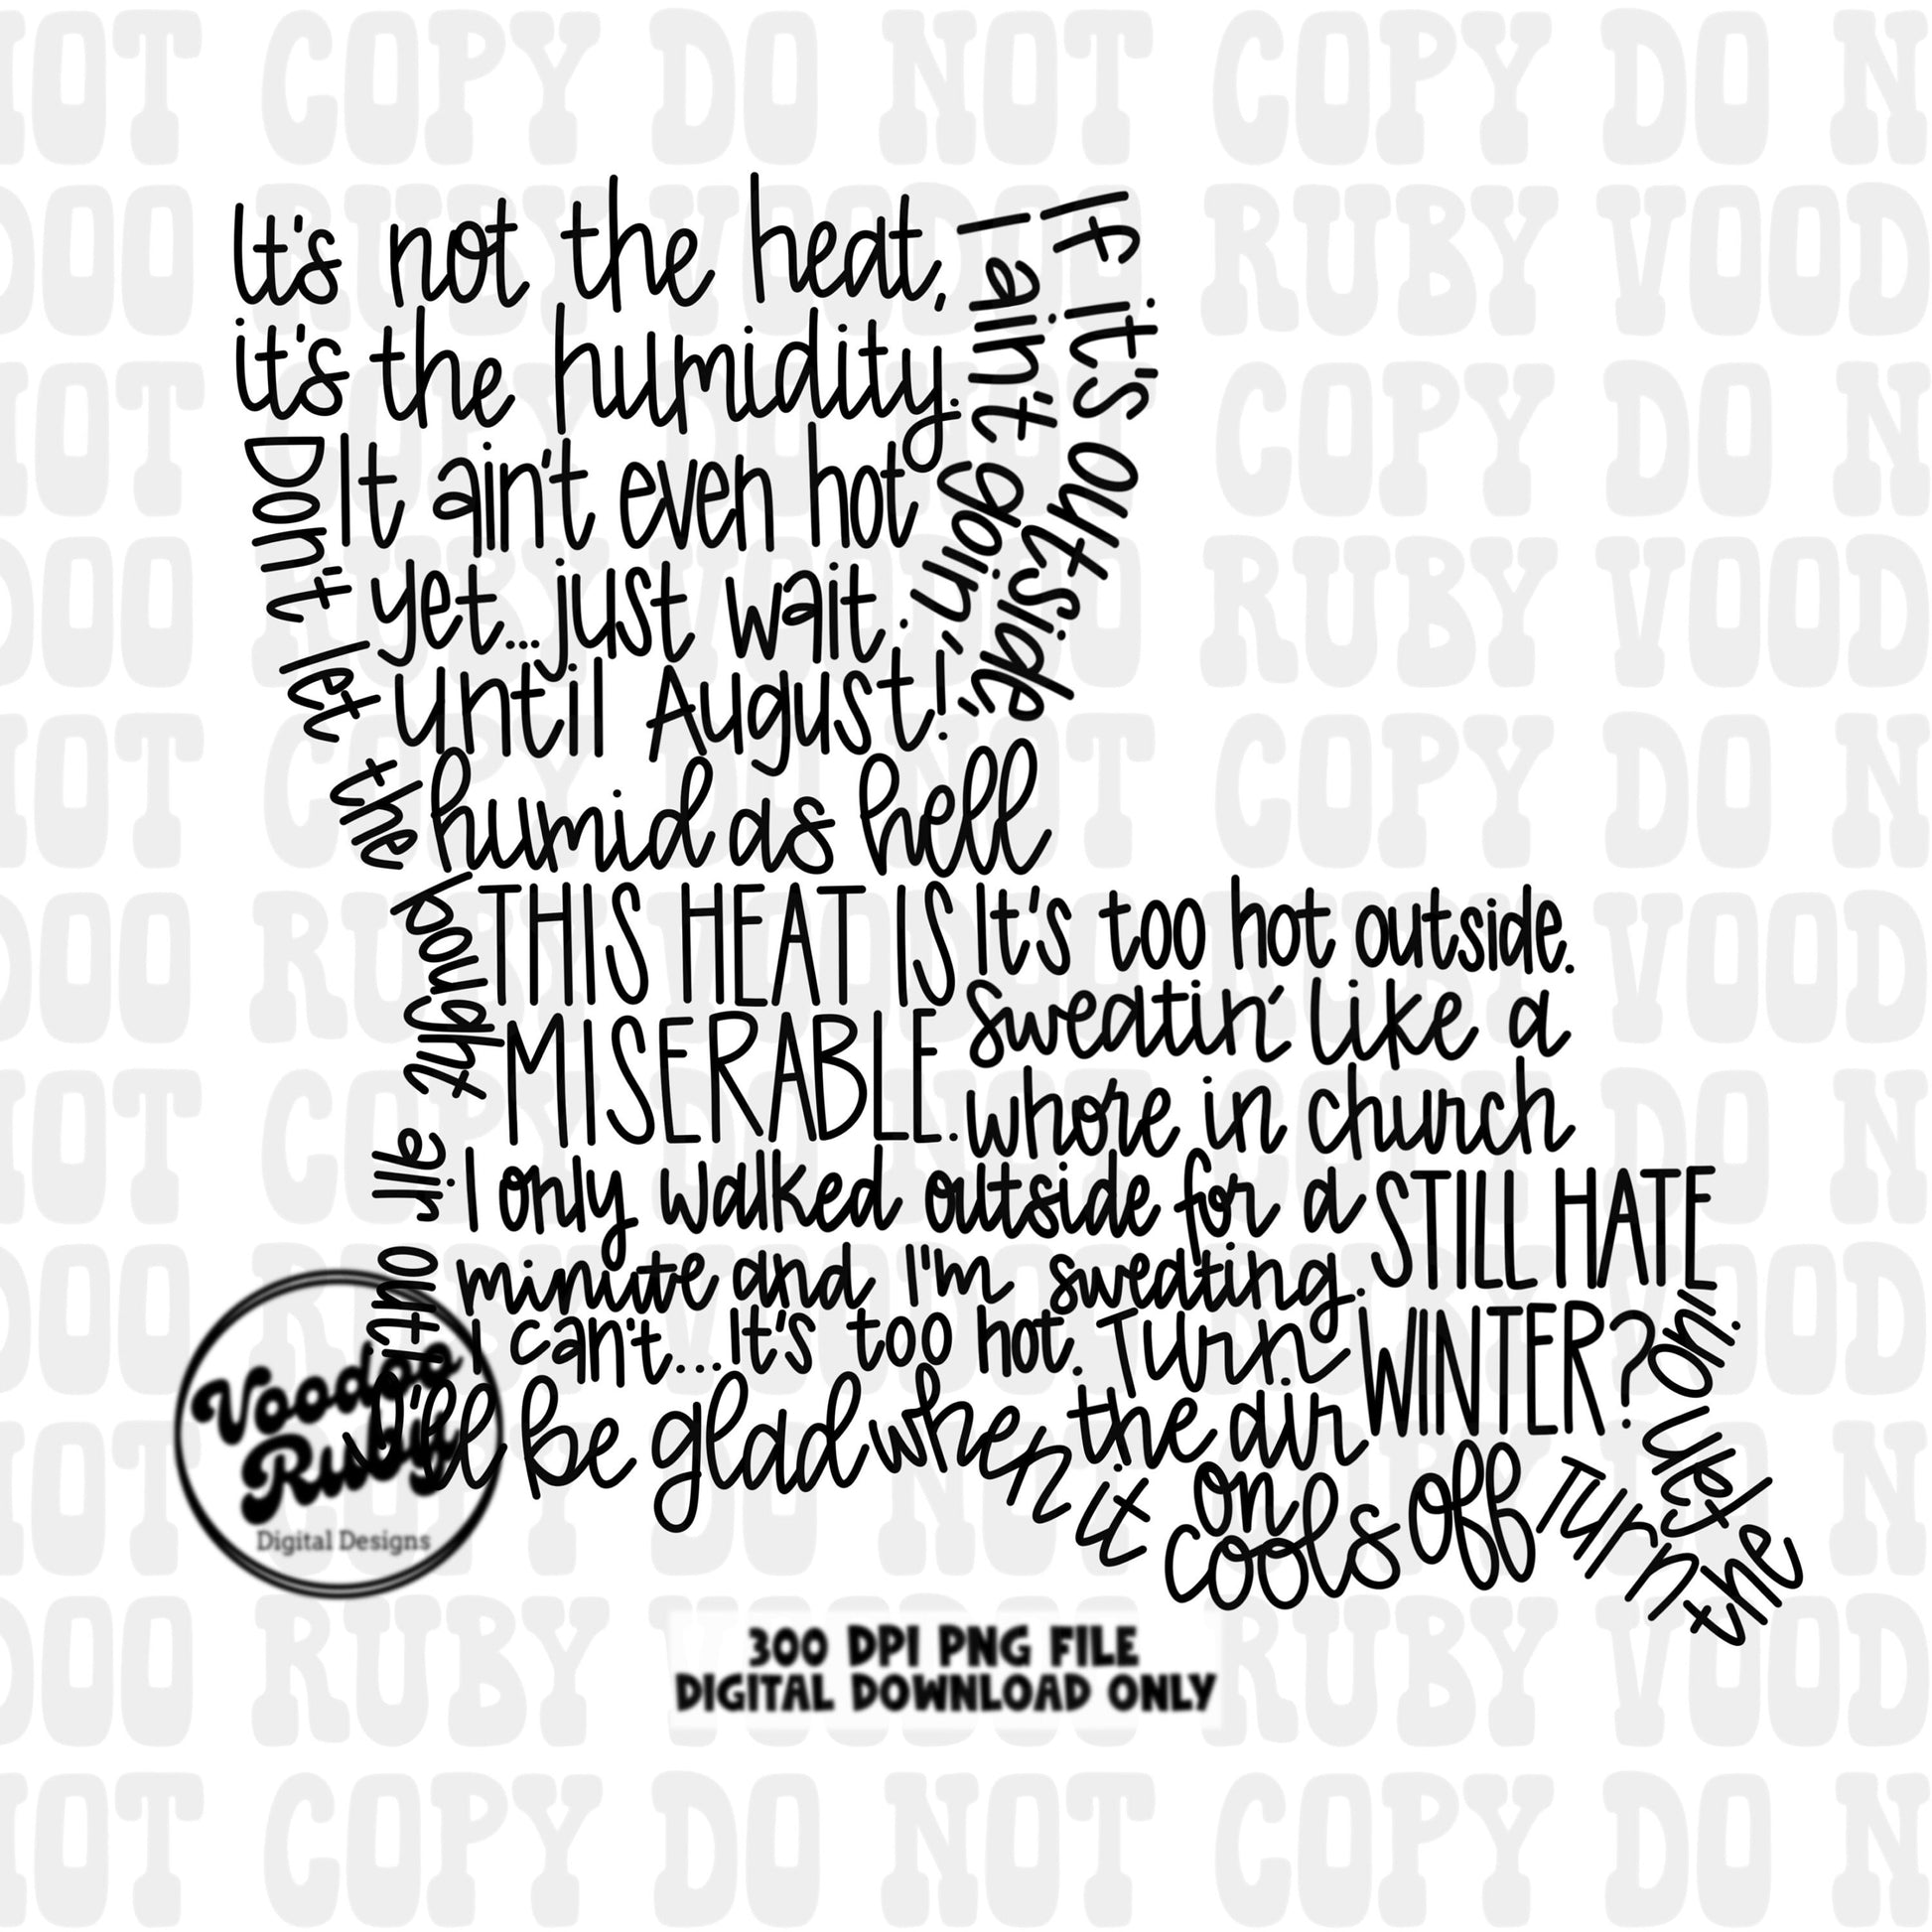 It's not the heat,
it's the humidity.
If it's outside,
I ain't goin'
Don't let the bought air out!
It ain't even hot
yet...just wait
until August!
humid as hell
THIS HEAT IS
MISERABLE.
It's too hot outside.
Sweatin' like a
whore in church
I only walked outside for a
minute and I'm sweating.
STILL HATE
WINTER?
I can't...It's too hot.
Turn
the air
on
I'll be glad when it cools off
Turn the
AC on!
Voodoo
Ruby
Digital Designs
300 DPI PNG FILE
DIGITAL DOWNLOAD ONLY
NOT COPY DO NOT COPY DO N
DOO RUBY VOODOO RUBY VOOD
NOT COPY DO NOT COPY DO N
DOO RUBY VOODOO RUBY VOOD
NOT COPY DO NOT COPY DO N
DOO RUBY VOODOO RUBY VOOD
NOT COPY DO NOT COPY DO N
DOO RUBY VOODOO RUBY VOOD
NOT COPY DO NOT COPY DO N
DOO RUBY VOODOO RUBY VOOD
NOT COPY DO NOT COPY DO N